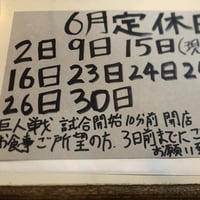 6月定休日
2日9日15日(現
16日23日24日2
26日30日
巨人戦 試合開始10分前 開店
お食事ご所望の方、3日前までにこ
お願い致